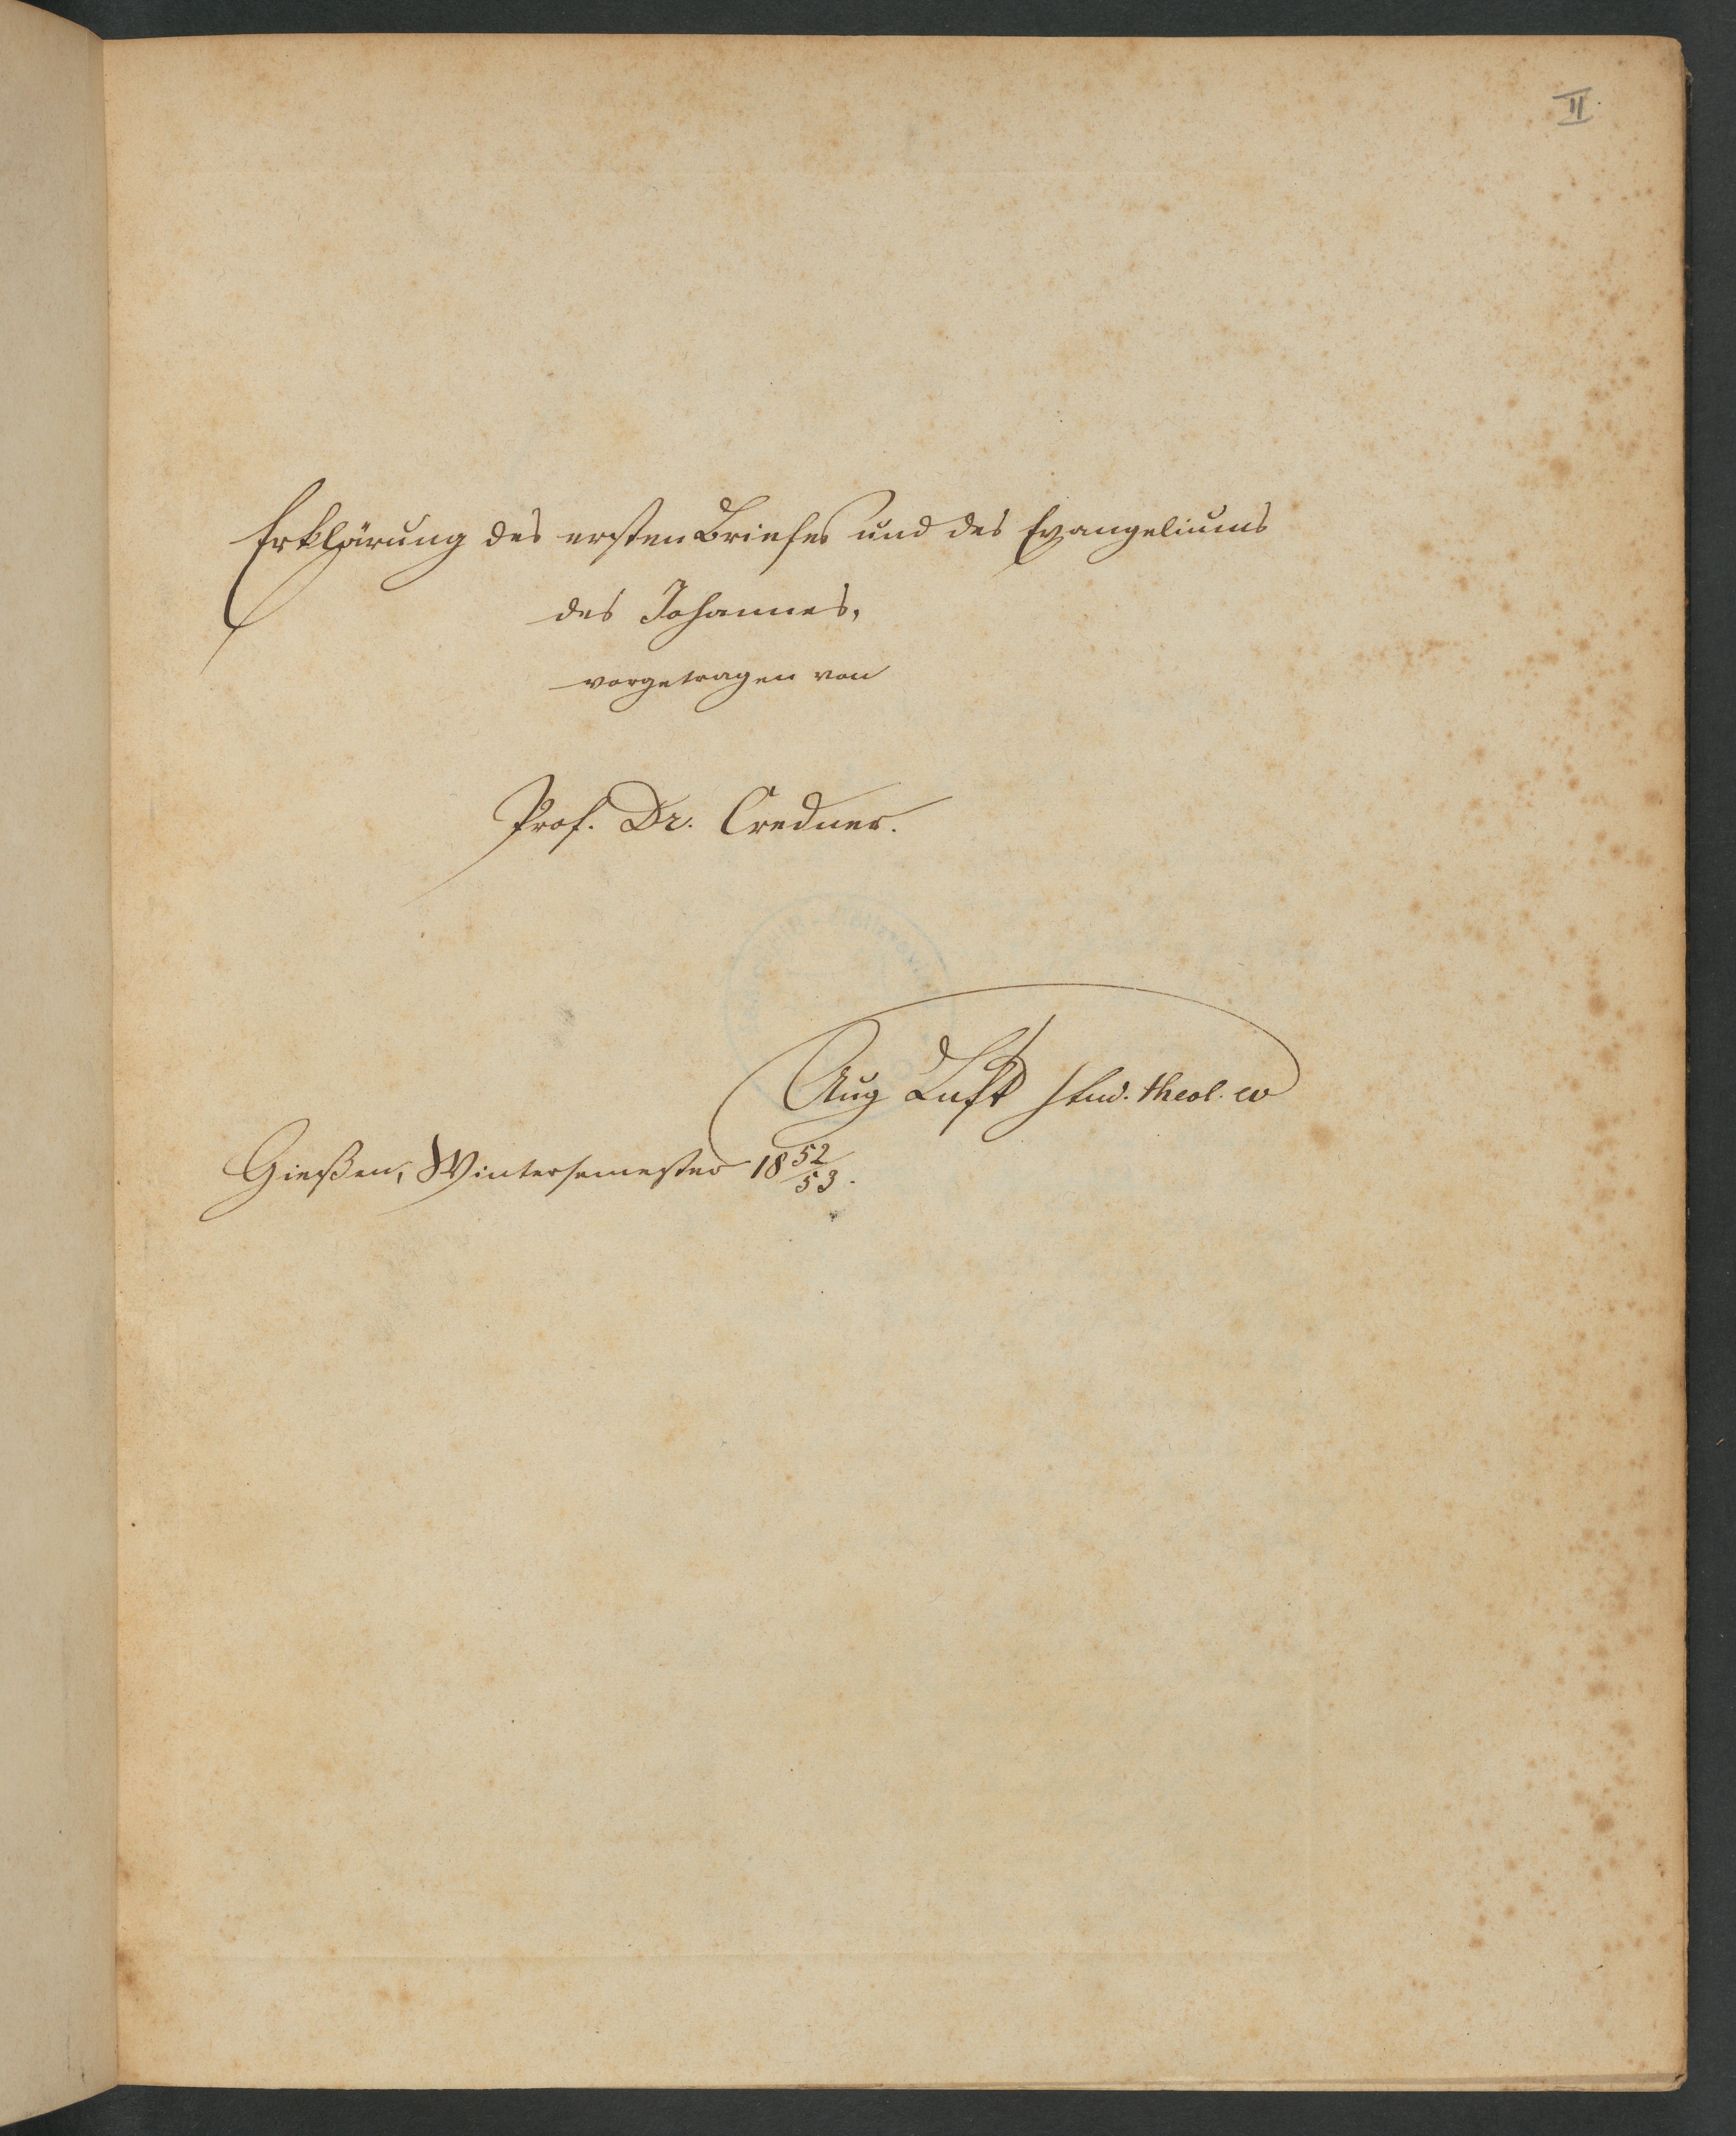 II.
Erklärung des ersten Briefes und des Evangeliums
des Johannes,
vorgetragen von
Prof. Dr. Credner.
Aug Luft stud. theol. ev
Gießen, Wintersemester 18 52/53.